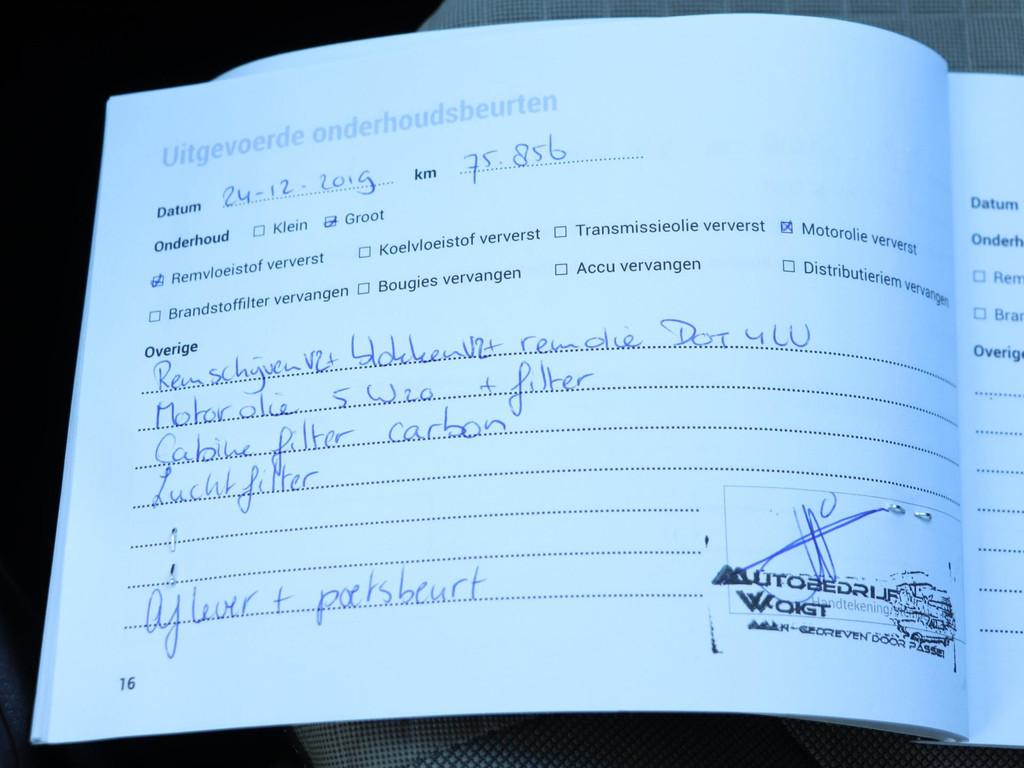 Uitgevoerde onderhoudsbeurten
Datum 24-12-2019 km 75.856
Onderhoud ☐ Klein ☒ Groot
☒ Remvloeistof ververst ☐ Koelvloeistof ververst ☐ Transmissieolie ververst ☒ Motorolie ververst
☐ Brandstoffilter vervangen ☐ Bougies vervangen ☐ Accu vervangen ☐ Distributieriem vervangen
Overige
Remschijven V2+ blokken V2+ remolie DOT 4 LV
Motorolie 5W20 + filter
Cabine filter carbon
Luchtfilter
Aflever + poetsbeurt
AUTOBEDRIJF
VOIGT
Handtekening
GEDREVEN DOOR PASSI
16
Datum
Onderh
☐ Rem
☐ Bran
Overige